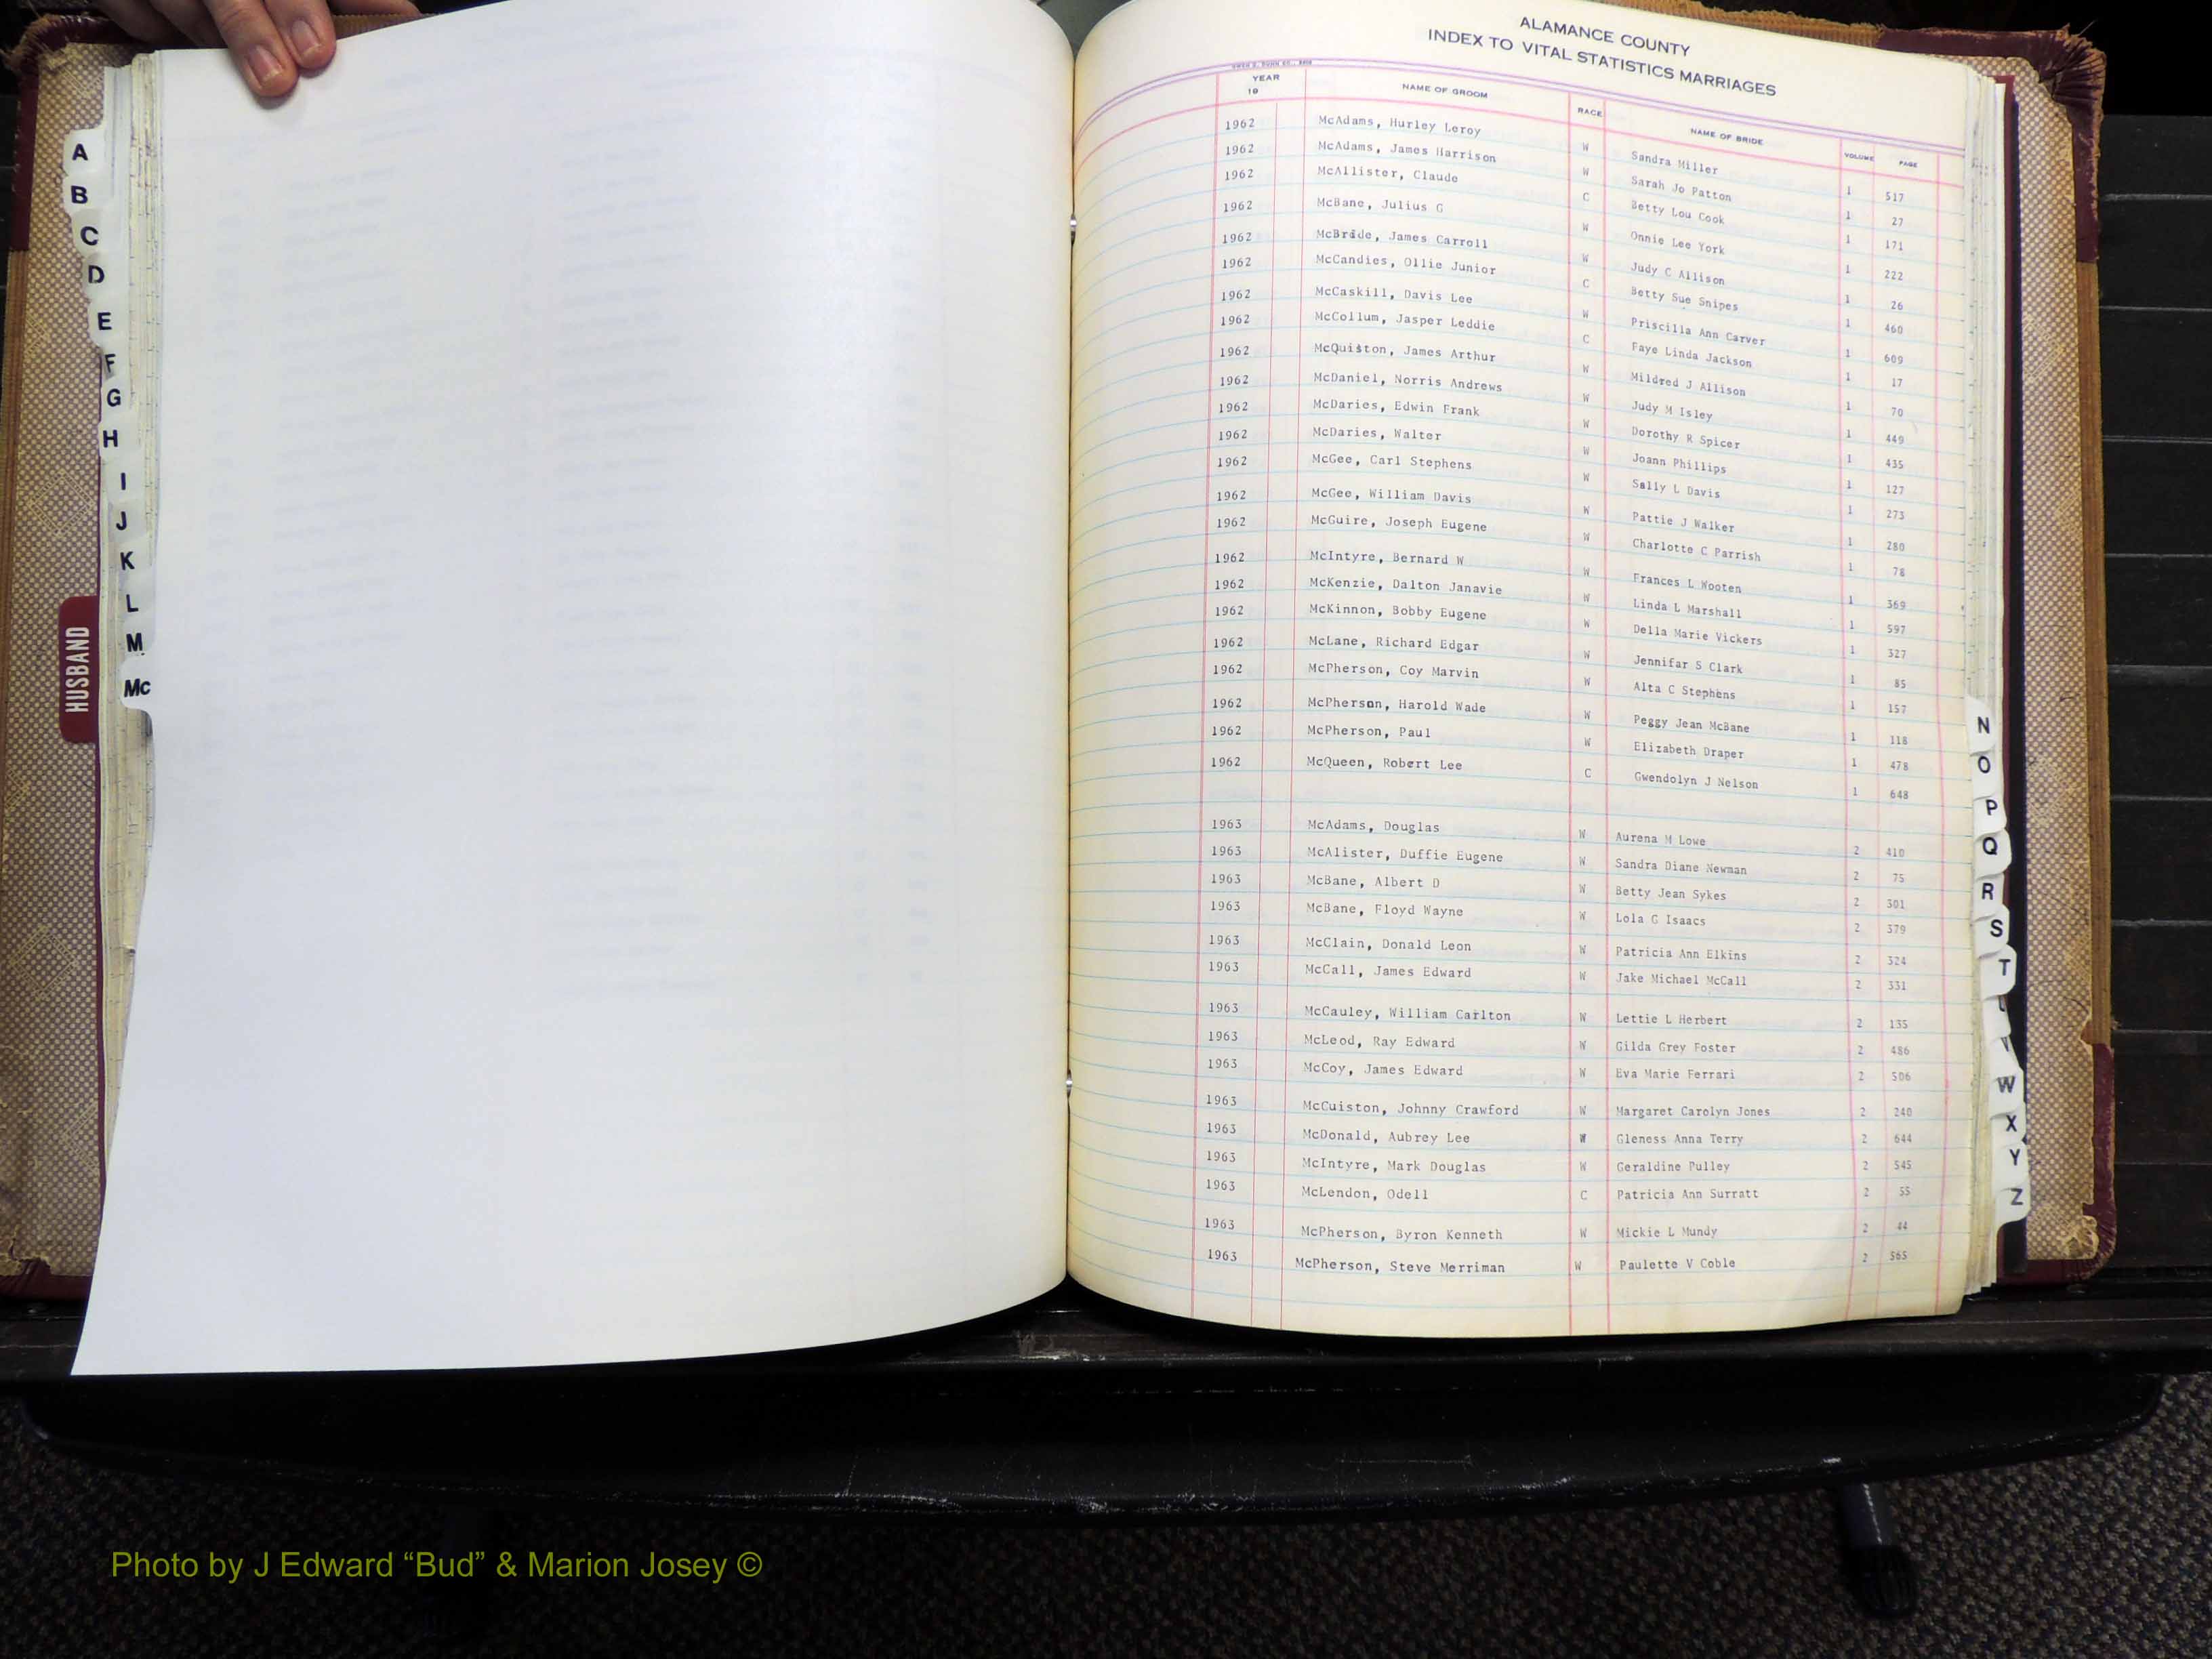 ALAMANCE COUNTY
INDEX TO VITAL STATISTICS MARRIAGES
OWEN G. DUNN CO.,
YEAR 19 NAME OF GROOM RACE NAME OF BRIDE VOLUME PAGE
1962 McAdams, Hurley Leroy W Sandra Miller 1 517
1962 McAdams, James Harrison W Sarah Jo Patton 1 27
1962 McAllister, Claude C Betty Lou Cook 1 171
1962 McBane, Julius G W Onnie Lee York 1 222
1962 McBride, James Carroll W Judy C Allison 1 26
1962 McCandies, Ollie Junior C Betty Sue Snipes 1 460
1962 McCaskill, Davis Lee W Priscilla Ann Carver 1 609
1962 McCollum, Jasper Leddie C Faye Linda Jackson 1 17
1962 McQuiston, James Arthur W Mildred J Allison 1 70
1962 McDaniel, Norris Andrews W Judy M Isley 1 449
1962 McDaries, Edwin Frank W Dorothy R Spicer 1 435
1962 McDaries, Walter W Joann Phillips 1 127
1962 McGee, Carl Stephens W Sally L Davis 1 273
1962 McGee, William Davis W Pattie J Walker 1 280
1962 McGuire, Joseph Eugene W Charlotte C Parrish 1 78
1962 McIntyre, Bernard W W Frances L Wooten 1 369
1962 McKenzie, Dalton Janavie W Linda L Marshall 1 597
1962 McKinnon, Bobby Eugene W Della Marie Vickers 1 327
1962 McLane, Richard Edgar W Jennifar S Clark 1 85
1962 McPherson, Coy Marvin W Alta C Stephens 1 157
1962 McPherson, Harold Wade W Peggy Jean McBane 1 118
1962 McPherson, Paul W Elizabeth Draper 1 478
1962 McQueen, Robert Lee C Gwendolyn J Nelson 1 648
1963 McAdams, Douglas W Aurena M Lowe 2 410
1963 McAlister, Duffie Eugene W Sandra Diane Newman 2 75
1963 McBane, Albert D W Betty Jean Sykes 2 301
1963 McBane, Floyd Wayne W Lola G Isaacs 2 379
1963 McClain, Donald Leon W Patricia Ann Elkins 2 324
1963 McCall, James Edward W Jake Michael McCall 2 331
1963 McCauley, William Carlton W Lettie L Herbert 2 135
1963 McLeod, Ray Edward W Gilda Grey Foster 2 486
1963 McCoy, James Edward W Eva Marie Ferrari 2 506
1963 McCuiston, Johnny Crawford W Margaret Carolyn Jones 2 240
1963 McDonald, Aubrey Lee W Gleness Anna Terry 2 644
1963 McIntyre, Mark Douglas W Geraldine Pulley 2 545
1963 McLendon, Odell C Patricia Ann Surratt 2 55
1963 McPherson, Byron Kenneth W Mickie L Mundy 2 44
1963 McPherson, Steve Merriman W Paulette V Coble 2 565
A
B
C
D
E
F
G
H
I
J
K
L
M
Mc
HUSBAND
N
O
P
Q
R
S
T
V
W
X
Y
Z
Photo by J Edward “Bud” & Marion Josey ©